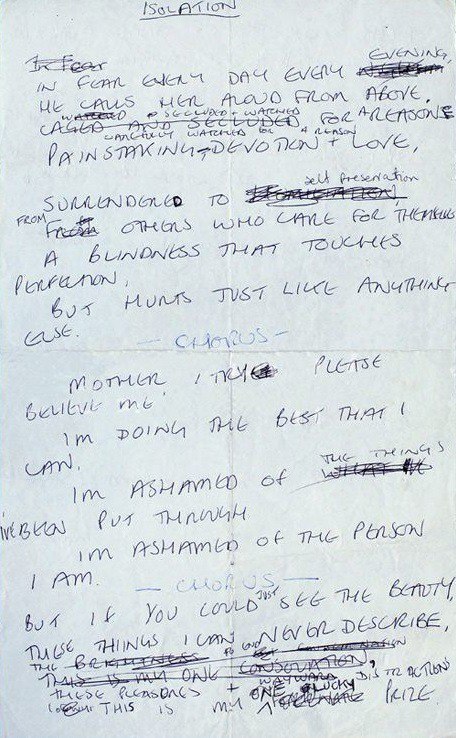 ISOLATION
In Fear
IN FEAR EVERY DAY EVERY EVENING,
HE CALLS HER ALOUD FROM ABOVE,
WATCHED + SECLUDED + WATCHED
CAGED AND SECLUDED FOR A REASON
CAREFULLY WATCHED FOR A REASON
PAINSTAKING DEVOTION + LOVE,
SURRENDERED TO self preservation
FROM OTHERS WHO CARE FOR THEMSELVES
A BLINDNESS THAT TOUCHES
PERFECTION,
BUT HURTS JUST LIKE ANYTHING
ELSE.
— CHORUS —
MOTHER I TRY PLEASE
BELIEVE ME,
IM DOING THE BEST THAT I
CAN.
IM ASHAMED OF THE THINGS
IVE BEEN PUT THROUGH
IM ASHAMED OF THE PERSON
I AM.
— CHORUS —
BUT IF YOU COULD JUST SEE THE BEAUTY,
THESE THINGS I CAN NEVER DESCRIBE,
THE BRIGHTNESS
THIS IS MY ONE CONSOLATION,
THESE PLEASURES + WAYWARD DISTRACTIONS
THIS IS MY ONE LUCKY PRIZE.